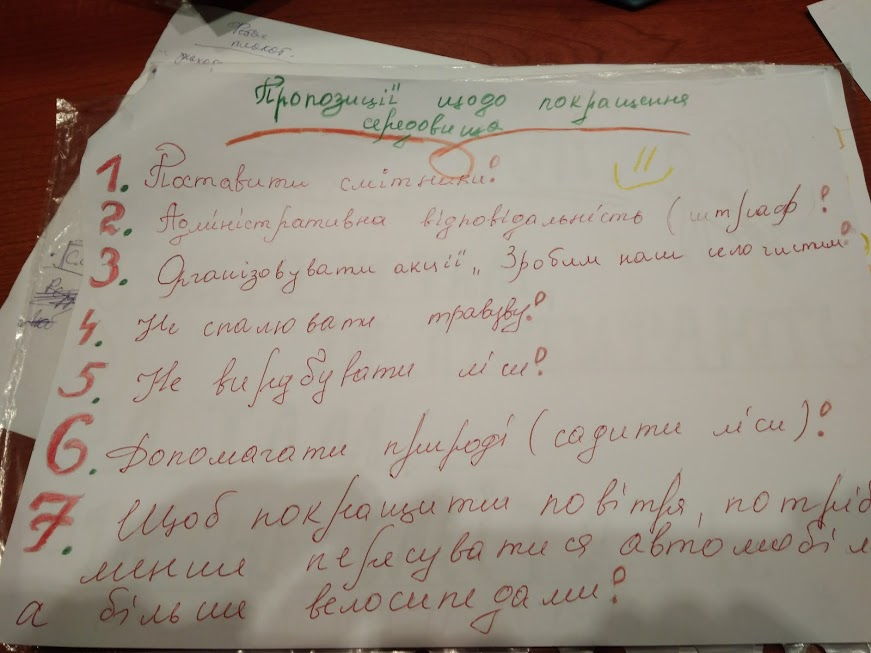 Пропозиції щодо покращення
середовища
1. Поставити смітники!
2. Адміністративна відповідальність (штраф!
3. Організовувати акції „Зробим наш село чистим!
4. Не спалювати травуву!
5. Не вирубувати ліси!
6. Допомагати природі (садити ліси)!
7. Щоб покращити повітря, потріб
менше пересуватися автомобіл
а більше велосипедами!